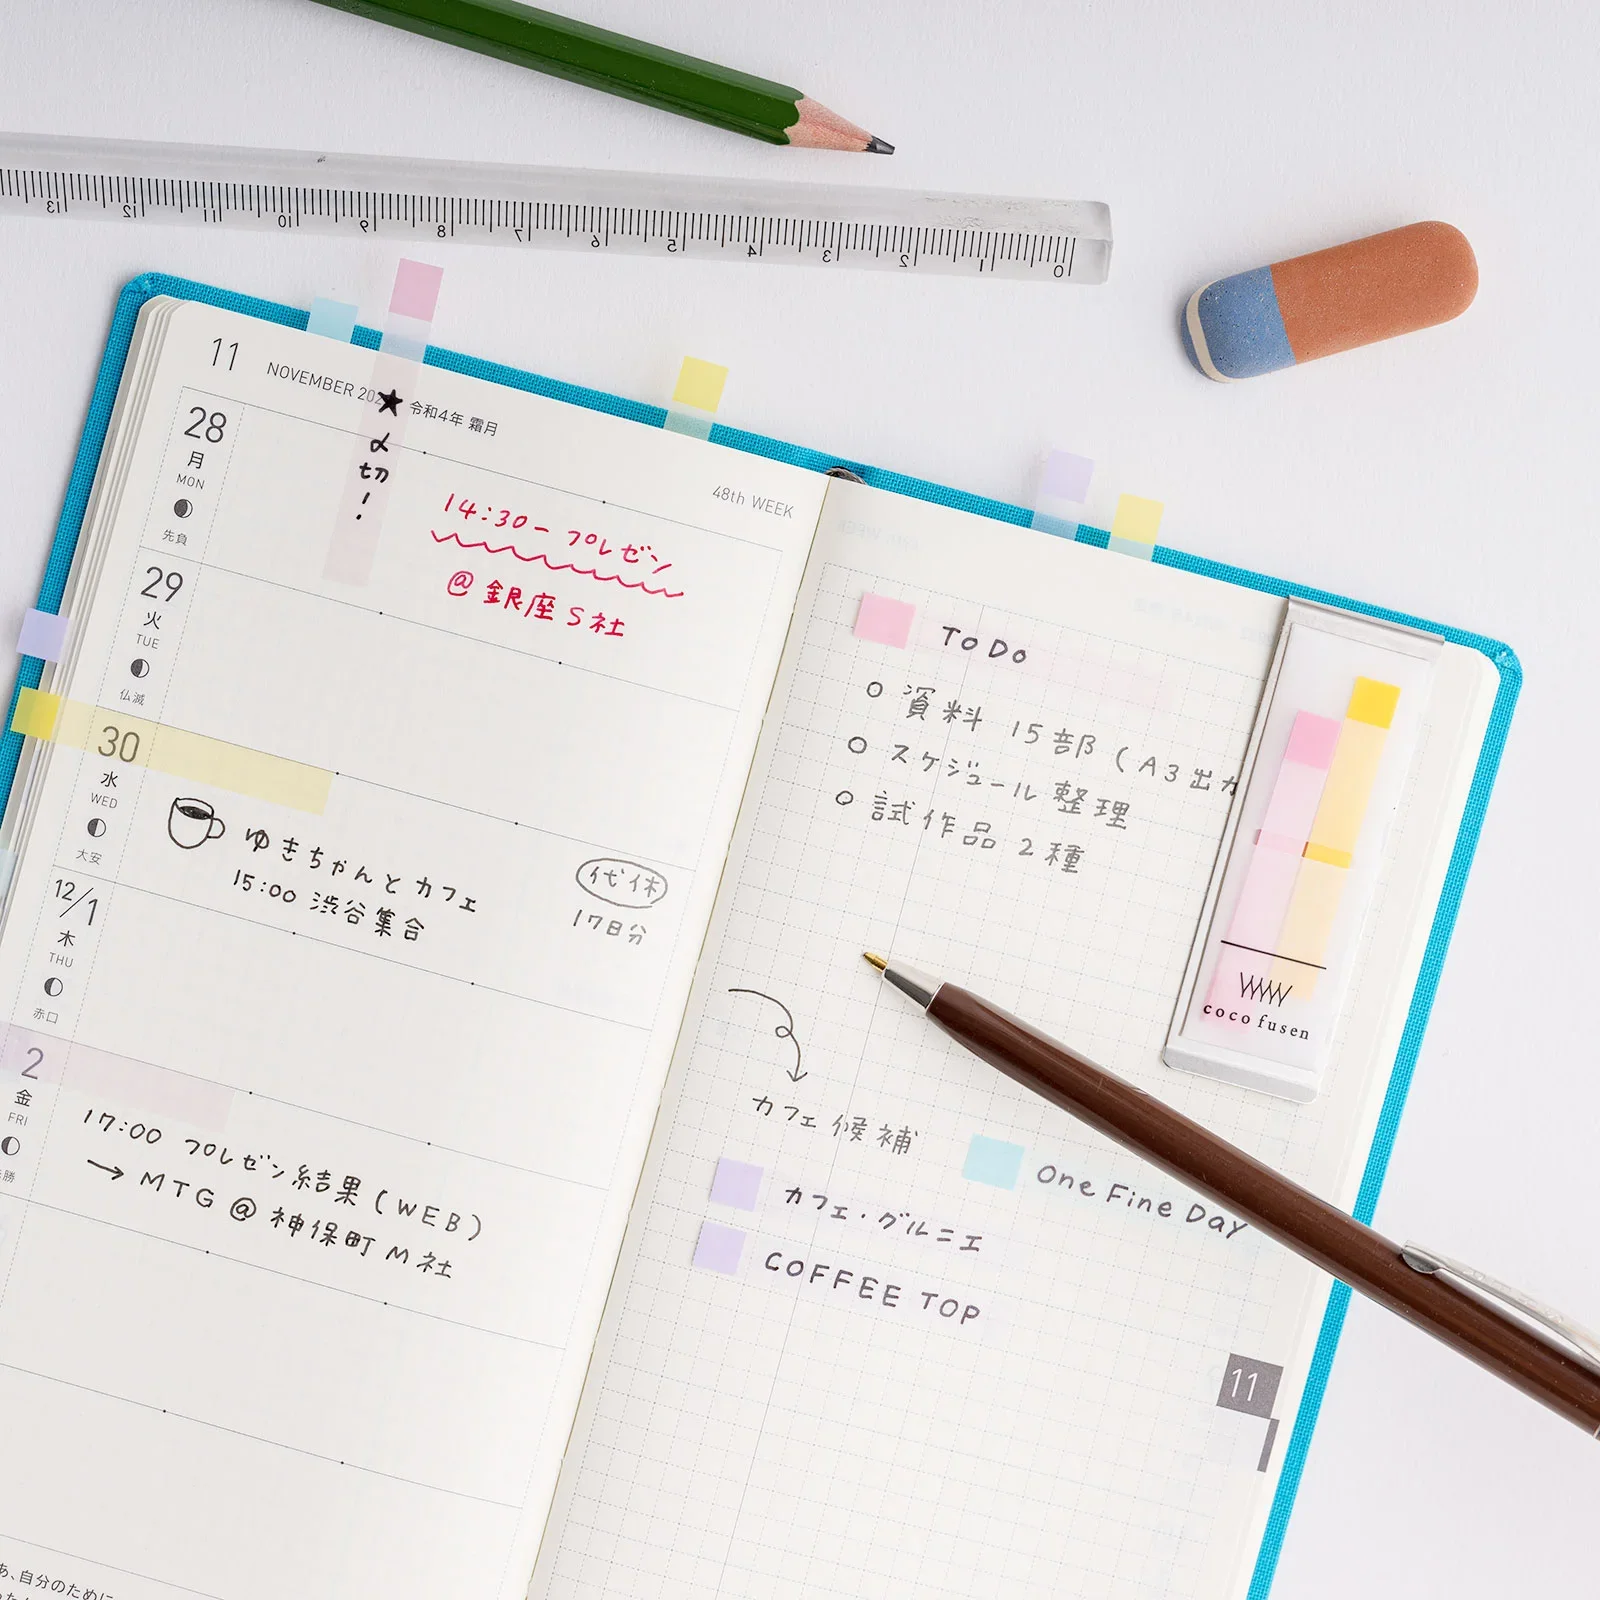 13 12 11 10 9 8 7 6 5 4 3 2 1 0
11 NOVEMBER 202 令和4年 霜月
48th WEEK
★〆切!
28
月
MON
先負
14:30- プレゼン
@銀座S社
29
火
TUE
仏滅
30
水
WED
大安
ゆきちゃんとカフェ
15:00 渋谷集合
代休
17日分
12/1
木
THU
赤口
2
金
FRI
勝
17:00 プレゼン結果(WEB)
→ MTG @ 神保町M社
あ、自分のために
ToDo
○ 資料 15部(A3出力
○ スケジュール整理
○ 試作品 2種
カフェ候補
カフェ・グルニエ
COFFEE TOP
One Fine Day
coco fusen
11